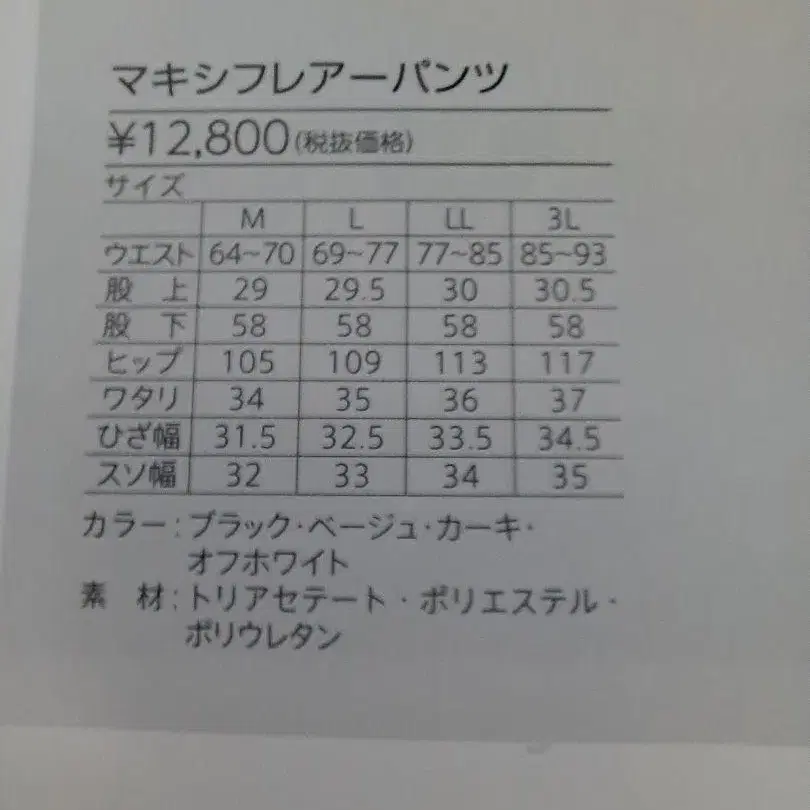 マキシフレアーパンツ
¥12,800(税抜価格)
サイズ
M L LL 3L
ウエスト 64~70 69~77 77~85 85~93
股 上 29 29.5 30 30.5
股 下 58 58 58 58
ヒップ 105 109 113 117
ワタリ 34 35 36 37
ひざ幅 31.5 32.5 33.5 34.5
スソ幅 32 33 34 35
カラー:ブラック・ベージュ・カーキ・
オフホワイト
素 材:トリアセテート・ポリエステル・
ポリウレタン